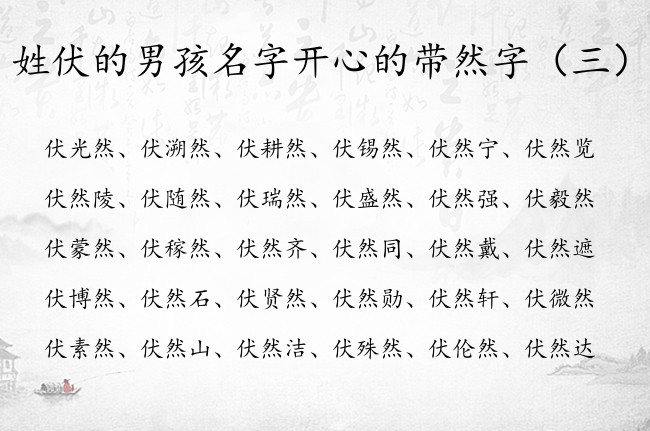 姓伏的男孩名字开心的带然字（三）
伏光然、伏溯然、伏耕然、伏锡然、伏然宁、伏然览
伏然陵、伏随然、伏瑞然、伏盛然、伏然强、伏毅然
伏蒙然、伏稼然、伏然齐、伏然同、伏然戴、伏然遮
伏博然、伏然石、伏贤然、伏然勋、伏然轩、伏微然
伏素然、伏然山、伏然洁、伏殊然、伏伦然、伏然达